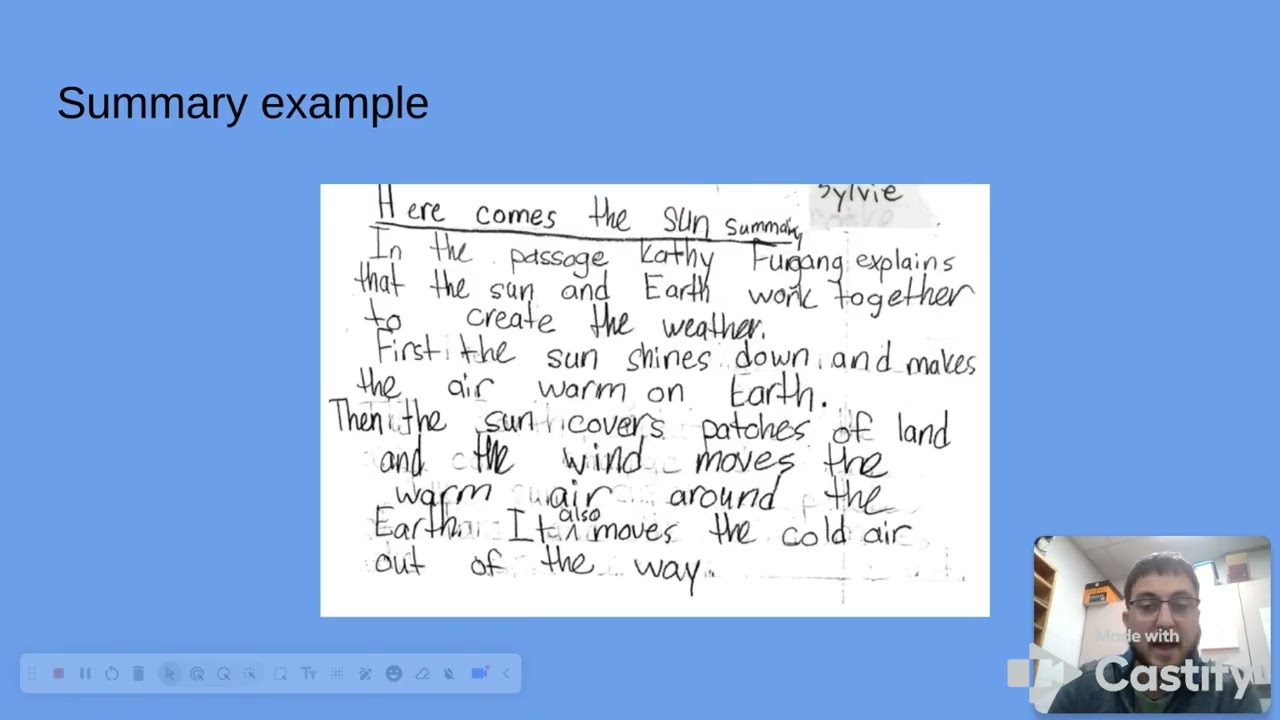 Summary example
Sylvie
Here comes the sun summary
In the passage Kathy Furgang explains
that the sun and Earth work together
to create the weather.
First the sun shines down and makes
the air warm on Earth.
Then the sun covers patches of land
and the wind moves the
warm air around the
Earth. It also moves the cold air
out of the way.
Made with
Castify